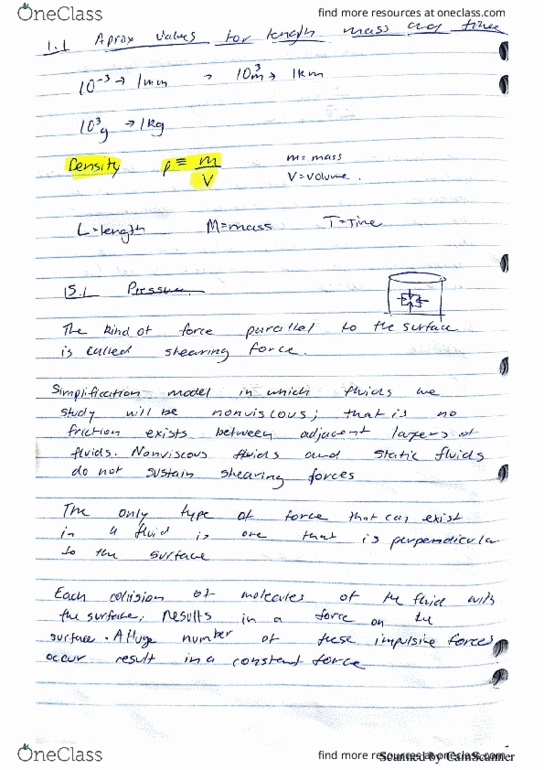 OneClass
find more resources at oneclass.com
find more resources at oneclass.com
1.1 Aprox values for length mass and time
10⁻³ → 1mm → 10³m → 1km
10³g → 1kg
Density ρ ≡ m/V
m = mass
V = volume.
L = length M = mass T = Time
15.1 Pressure
The kind of force parallel to the surface
is called shearing force.
Simplification model in which fluids we
study will be nonviscous; that is no
friction exists between adjacent layers of
fluids. Nonviscous fluids and static fluids
do not sustain shearing forces
The only type of force that can exist
in a fluid is one that is perpendicular
to the surface
Each collision of molecules of the fluid with
the surface, Results in a force on the
surface. A Huge number of these impulsive forces
occur result in a constant force
OneClass
find more resources at oneclass.com
Scanned by CamScanner